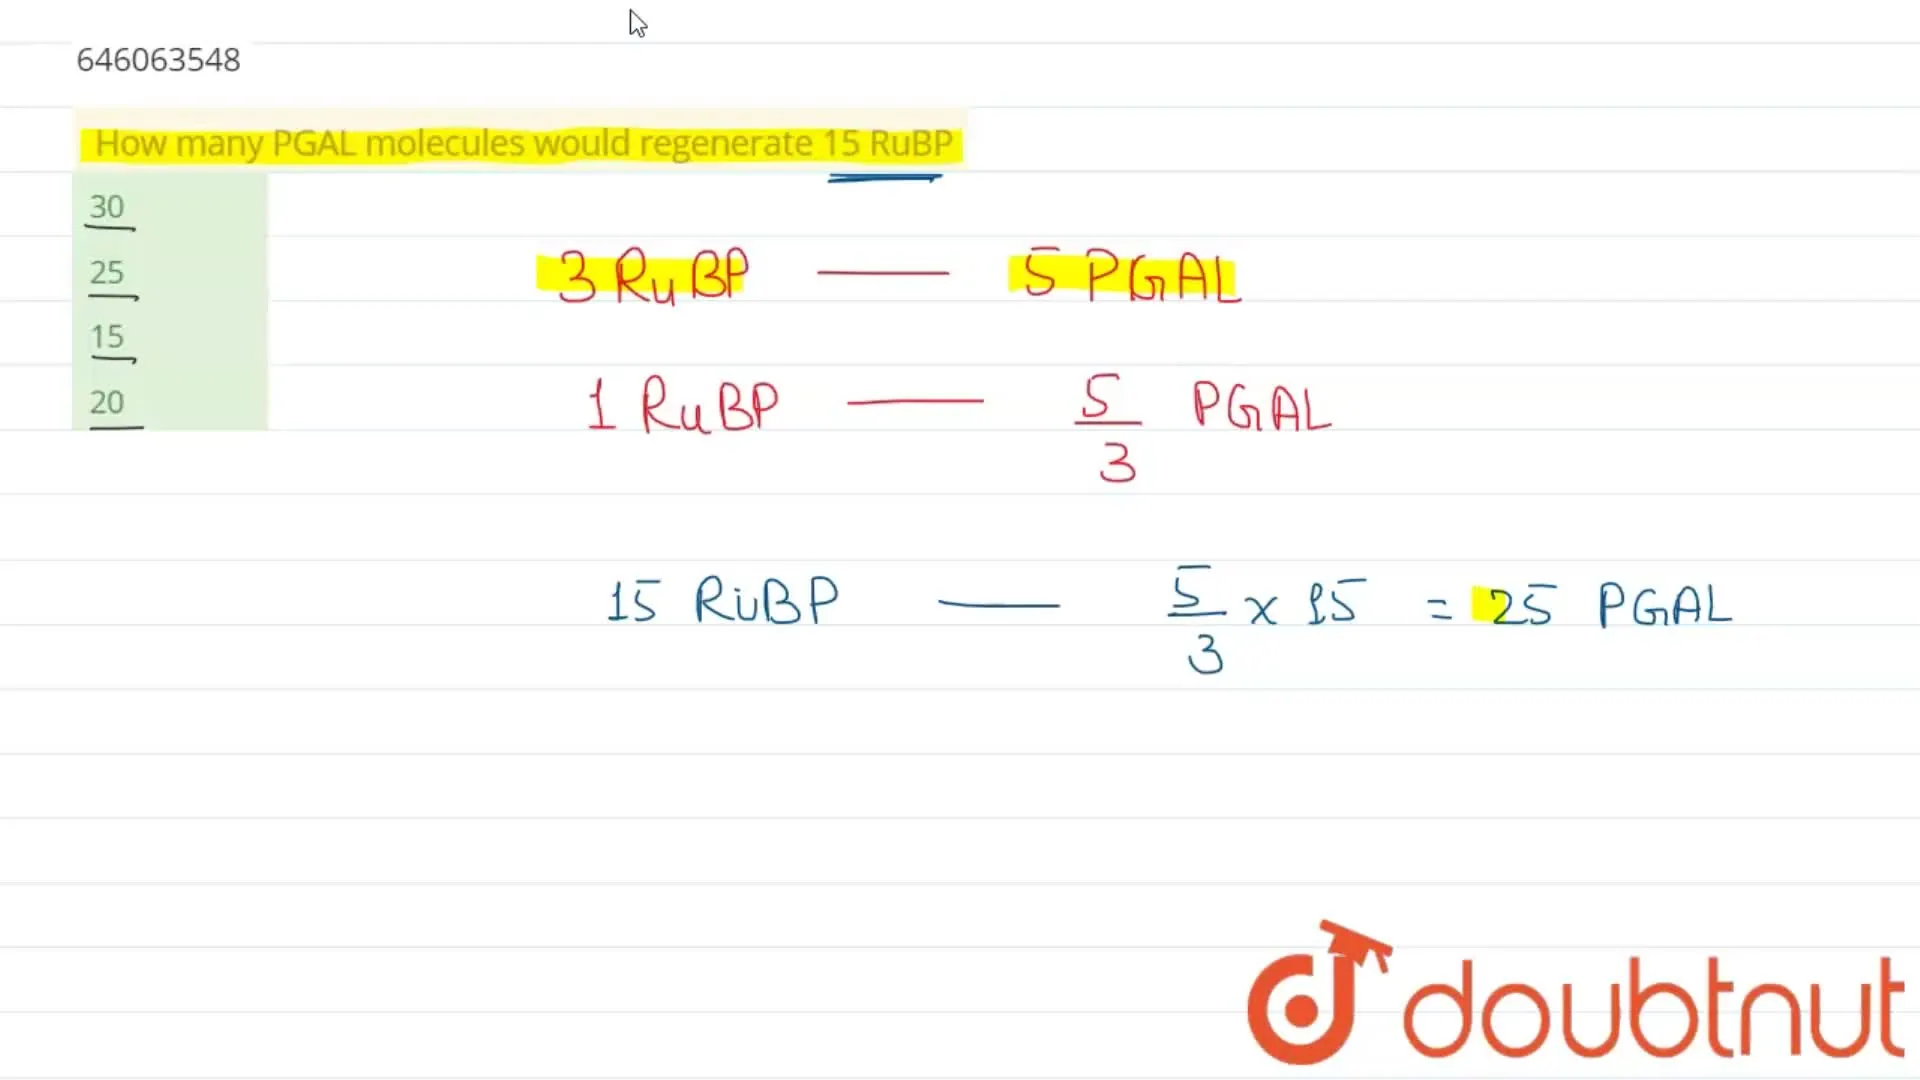 646063548
How many PGAL molecules would regenerate 15 RuBP
30
25
15
20
3 RuBP — 5 PGAL
1 RuBP — 5/3 PGAL
15 RuBP — 5/3 x 15 = 25 PGAL
doubtnut